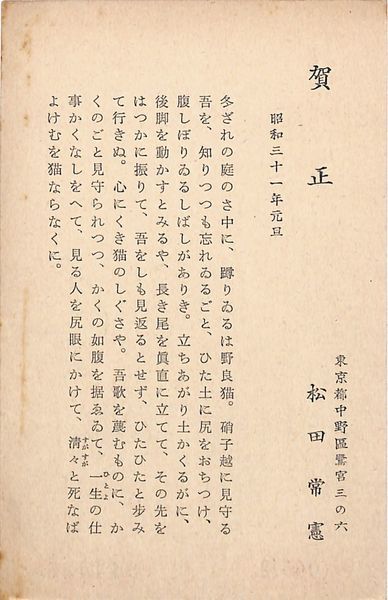 賀正
昭和三十一年元旦
東京都中野區鷺宮三の六
松田常憲
冬ざれの庭のさ中に、蹲りゐるは野良猫。硝子越に見守る
吾を、知りつつも忘れゐるごと、ひた土に尻をおちつけ、
腹しぼりゐるしばしがありき。立ちあがり土かくるがに、
後脚を動かすとみるや、長き尾を眞直に立てて、その先を
はつかに振りて、吾をしも見返るとせず、ひたひたと步み
て行きぬ。心にくき猫のしぐさや。吾歌を蔑むものに、か
くのごと見守られつつ、かくの如腹を据ゑゐて、一生の仕
事かくなしをへて、見る人を尻眼にかけて、淸々と死なば
よけむを猫ならなくに。
ひとよ
すがすが